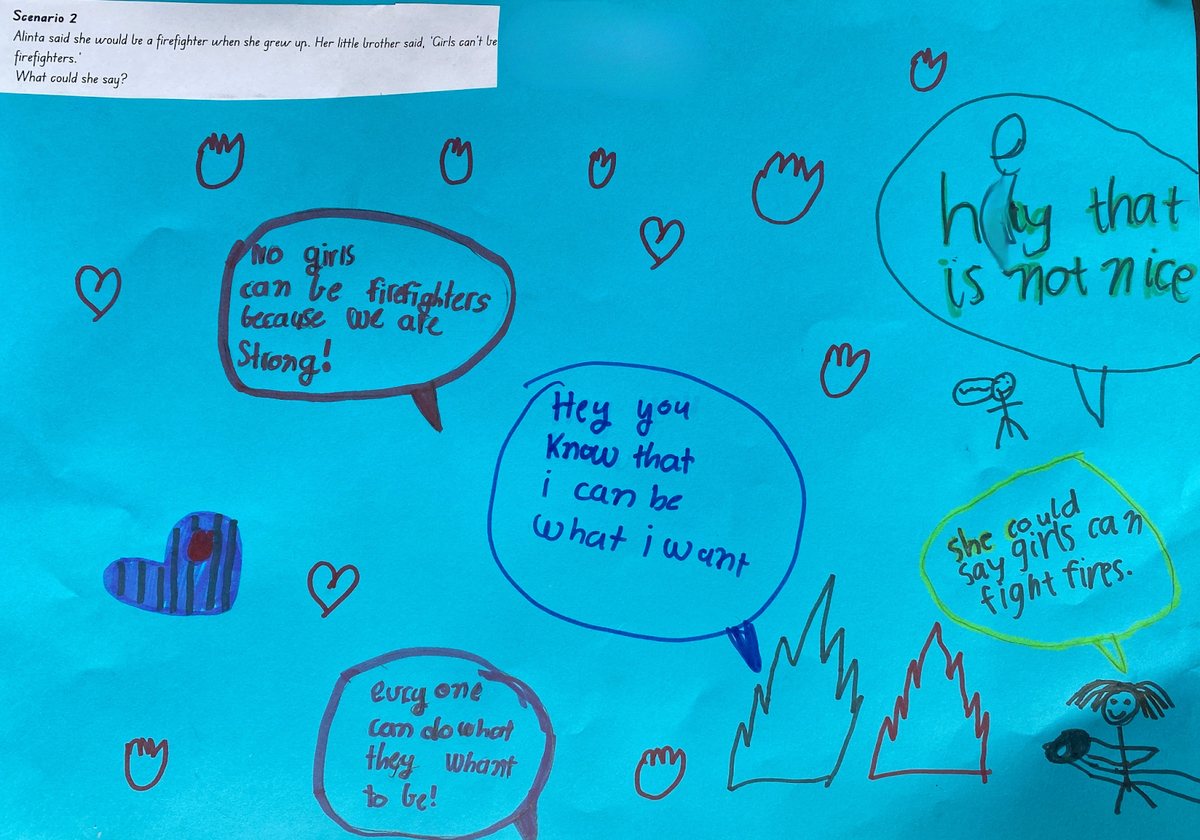 Scenario 2
Alinta said she would be a firefighter when she grew up. Her little brother said, 'Girls can't be
firefighters.'
What could she say?
No girls
can be firefighters
because we are
Strong!
Hey you
Know that
i can be
what i want
hey that
is not nice
she could
say girls can
fight fires.
evryone
can do what
they whant
to be!